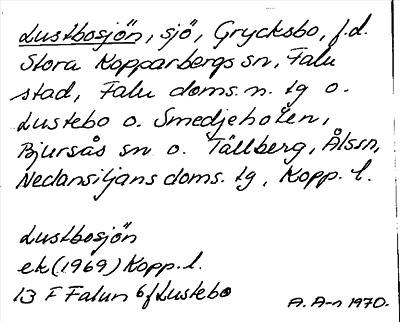 Lustbosjön, sjö, Grycksbo, f.d.
Stora Kopparbergs sn, Falu
stad, Falu doms.n. tg o.
Lustebo o. Smedjeholen,
Bjursås sn o. Tällberg, Ålssn,
Nedansiljans doms. tg, Kopp. l.
Lustbosjön
ek (1969) Kopp. l.
13 F Falun 6f Lustebo
A. A-n 1970.